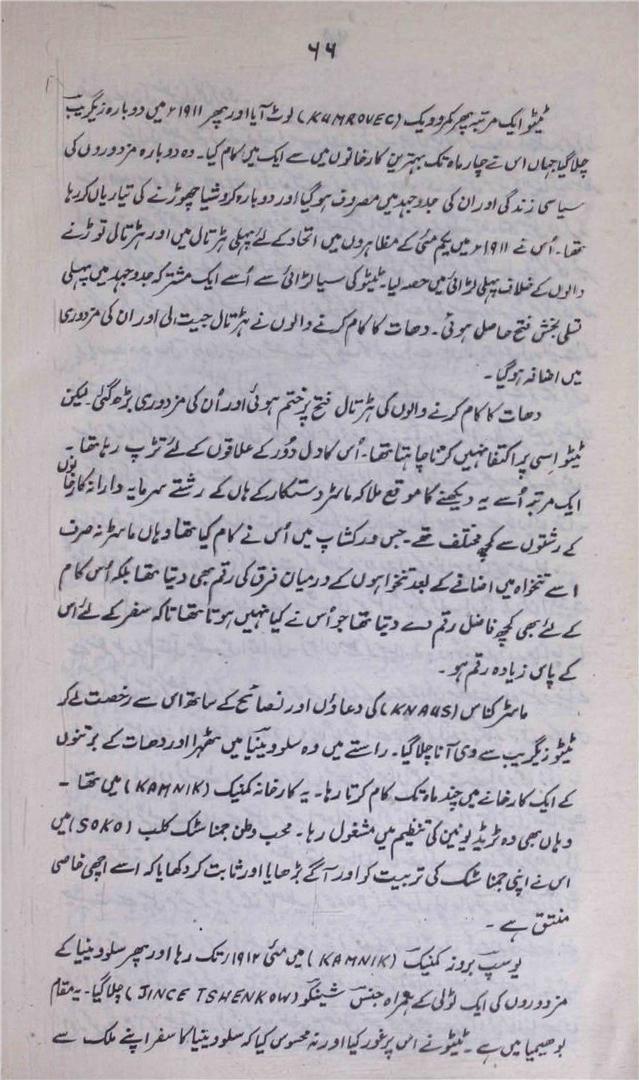 ۶۶
ٹیٹو ایک مرتبہ پھر کمروویک (KUMROVEC) لوٹ آیا اور پھر ۱۹۱۱ء میں دوبارہ زیگریب
چلا گیا جہاں اس نے چار ماہ تک بہترین کارخانوں میں سے ایک میں کام کیا۔ وہ دوبارہ مزدوروں کی
سیاسی زندگی اور ان کی جدوجہد میں مصروف ہو گیا اور دوبارہ کروشیا چھوڑنے کی تیاریاں کر رہا
تھا۔ اُس نے ۱۹۱۱ء میں یکم مئی کے مظاہروں میں اتحاد کے لئے پہلی ہڑتال میں اور ہڑتالی توڑنے
والوں کے خلاف پہلی لڑائی میں حصہ لیا۔ ٹیٹو کی سیا لڑائی سے اُسے ایک مشترکہ جدوجہد میں پہلی
تسلی بخش فتح حاصل ہوئی۔ دھات کا کام کرنے والوں نے ہڑتال جیت لی اور ان کی مزدوری
میں اضافہ ہو گیا۔
دھات کا کام کرنے والوں کی ہڑتال فتح پر ختم ہوئی اور اُن کی مزدوری بڑھ گئی لیکن
ٹیٹو اسی پر اکتفا نہیں کرنا چاہتا تھا۔ اُس کا دل دُور کے علاقوں کے لئے تڑپ رہا تھا۔
ایک مرتبہ اُسے یہ دیکھنے کا موقع ملا کہ ماسٹر دستکار کے ہاں کے رشتے سرمایہ دارانہ کارخانوں
کے رشتوں سے کچھ مختلف تھے۔ جس ورکشاپ میں اُس نے کام کیا تھا وہاں ماسٹر نہ صرف
اسے تنخواہ میں اضافے کے بعد تنخواہوں کے درمیان فرق کی رقم بھی دیتا تھا بلکہ اُس کام
کے لئے بھی کچھ فاضل رقم دے دیتا تھا جو اُس نے کیا نہیں ہوتا تھا تاکہ سفر کے لئے اس
کے پاس زیادہ رقم ہو۔
ماسٹر کناس (KNAUS) کی دعاؤں اور نصائح کے ساتھ اس سے رخصت لے کر
ٹیٹو زیگریب سے وی آنا چلا گیا۔ راستے میں وہ سلووینیا میں ٹھہرا اور دھات کے برتنوں
کے ایک کارخانے میں چند ماہ تک کام کرتا رہا۔ یہ کارخانہ کمنیک (KAMNIK) میں تھا۔
وہاں بھی وہ ٹریڈ یونین کی تنظیم میں مشغول رہا۔ محب وطن جمناسٹک کلب (SOKO) میں
اس نے اپنی جمناسٹک کی تربیت کو اور آگے بڑھایا اور ثابت کر دکھایا کہ اسے اچھی خاصی
مشق ہے۔
یوسپ بروز کمنیک (KAMNIK) میں مئی ۱۹۱۲ء تک رہا اور پھر سلووینیا کے
مزدوروں کی ایک ٹولی کے ہمراہ جنس شینکو (JINCE TSHENKOW) چلا گیا۔ یہ مقام
بوہیمیا میں ہے۔ ٹیٹو نے اس پر غور کیا اور نہ محسوس کیا کہ سلووینیا کا سفر اپنے ملک سے